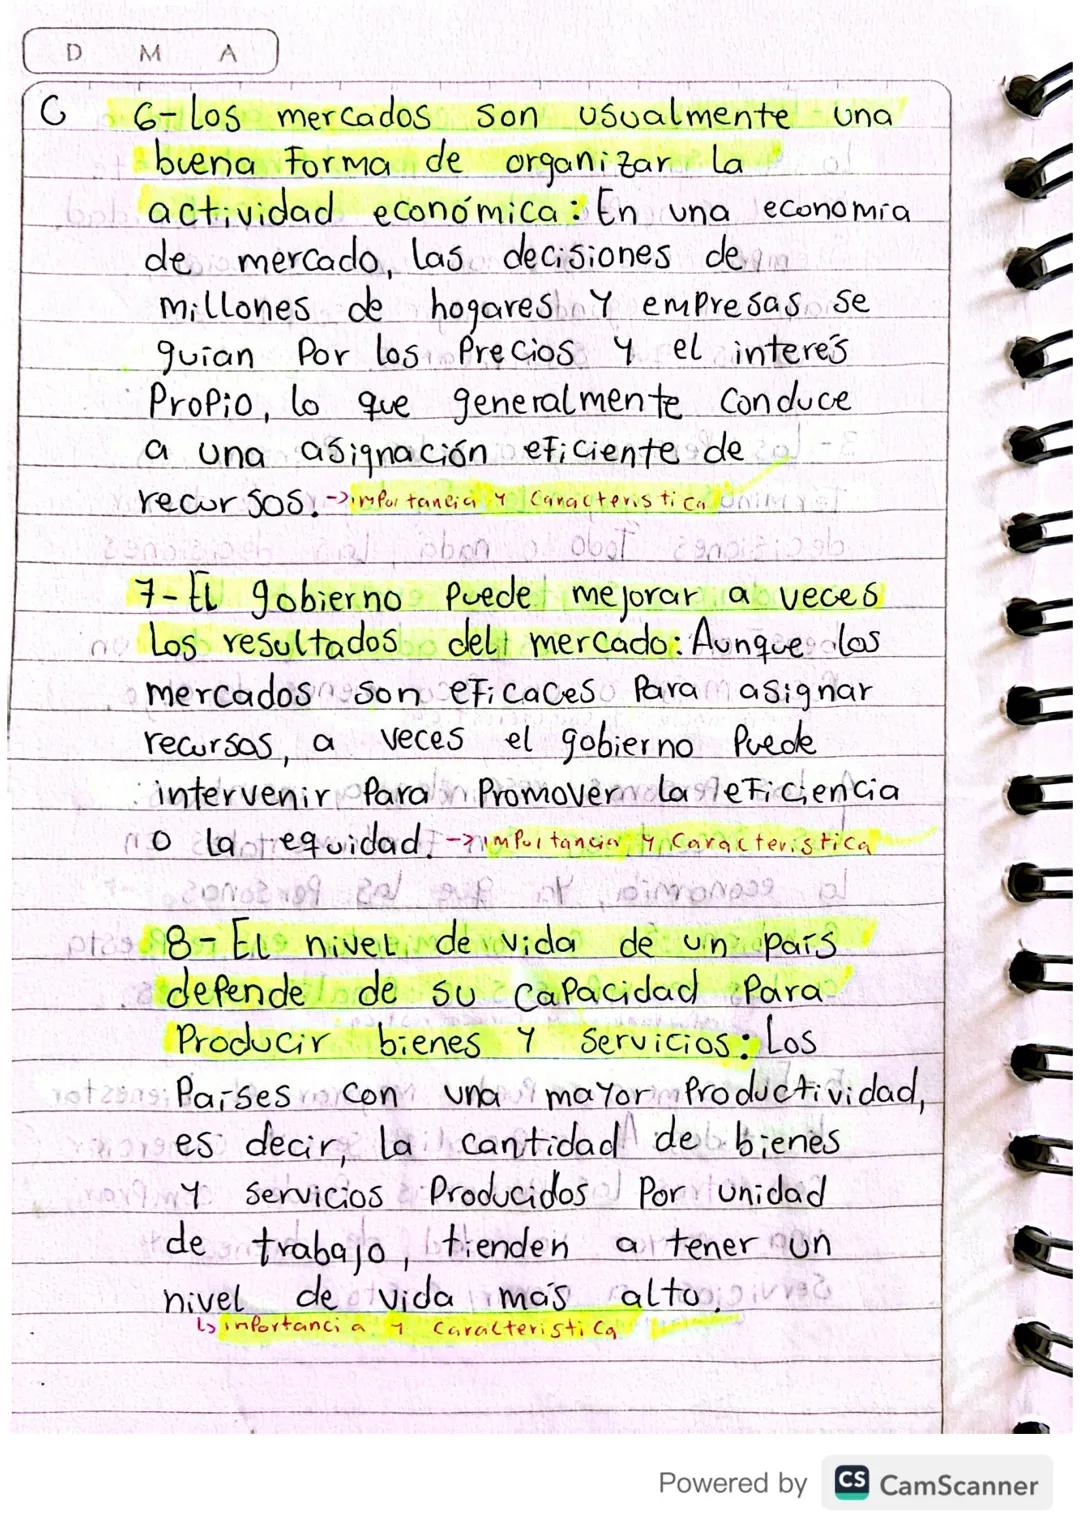 D M A
C 6- Los mercados son usualmente una
buena forma de organizar la
actividad económica: En una economía
de mercado, las decisiones de
millones de hogares y empresas se
guían por los precios y el interés
Propio, lo que generalmente conduce
a una asignación eficiente de
recursos. -> importancia y Caracteristica
7- El gobierno puede mejorar a veces
los resultados del mercado: Aunque los
mercados son eficaces para asignar
recursos, a veces el gobierno puede
intervenir para promover la eficiencia
o la equidad. -> importancia y Caracteristica
8- El nivel de vida de un país
depende de su capacidad para
Producir bienes y servicios: Los
Países con una mayor productividad,
es decir, la cantidad de bienes
y servicios producidos por unidad
de trabajo, tienden a tener un
nivel de vida más alto.
↳ importancia y Caracteristica
Powered by CS CamScanner